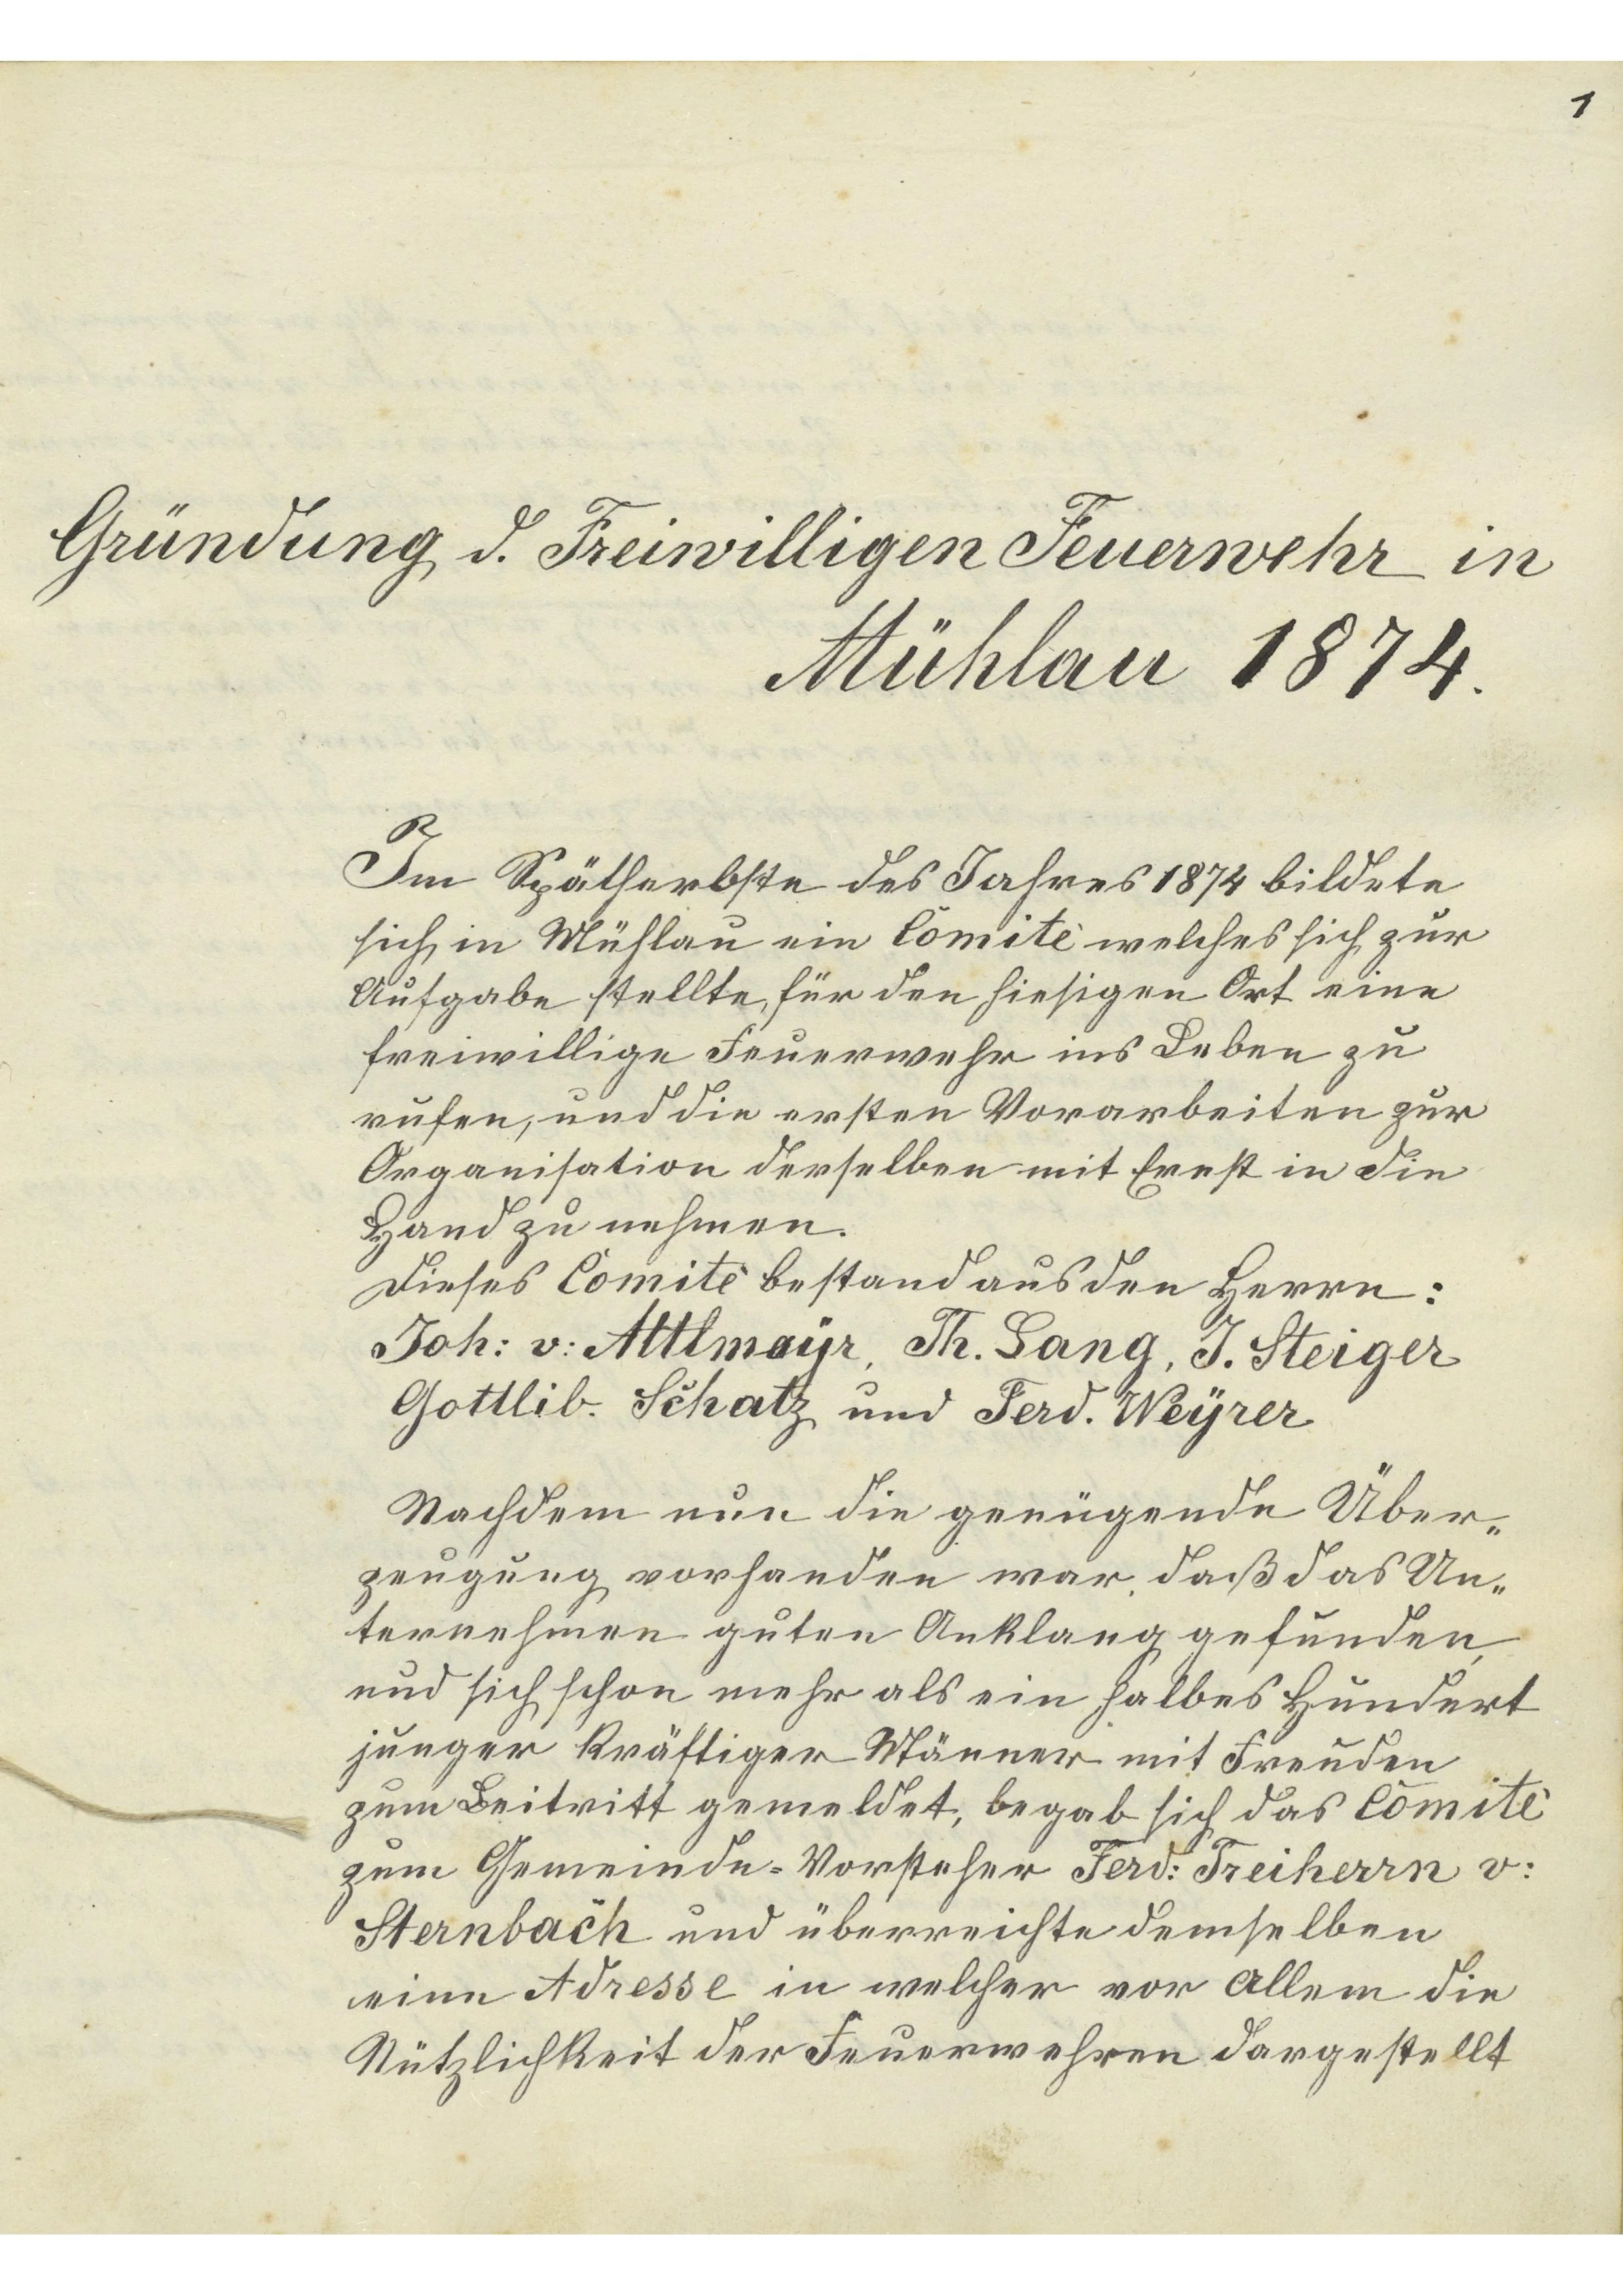 1
Gründung d. Freiwilligen Feuerwehr in
Mühlau 1874.
Im Spätherbste des Jahres 1874 bildete
sich in Mühlau ein Comitè welches sich zur
Aufgabe stellte, für den hiesigen Ort eine
freiwillige Feuerwehr ins Leben zu
rufen, und die ersten Vorarbeiten zur
Organisation derselben mit Ernst in die
Hand zu nehmen.
Dieses Comitè bestand aus den Herrn:
Joh: v: Attlmayr, Th. Lang, J. Steiger
Gottlib. Schatz und Ferd. Weÿrer
Nachdem nun die genügende Über„
zeugung vorhanden war, daß das Un„
ternehmen guten Anklang gefunden,
und sich schon mehr als ein halbes Hundert
junger kräftiger Männer mit Freuden
zum Beitritt gemeldet, begab sich das Comitè
zum Gemeinde=Vorsteher Ferd: Freiherrn v:
Sternbach und überreichte demselben
eine Adresse in welcher vor Allem die
Nützlichkeit der Feuerwehren dargestellt